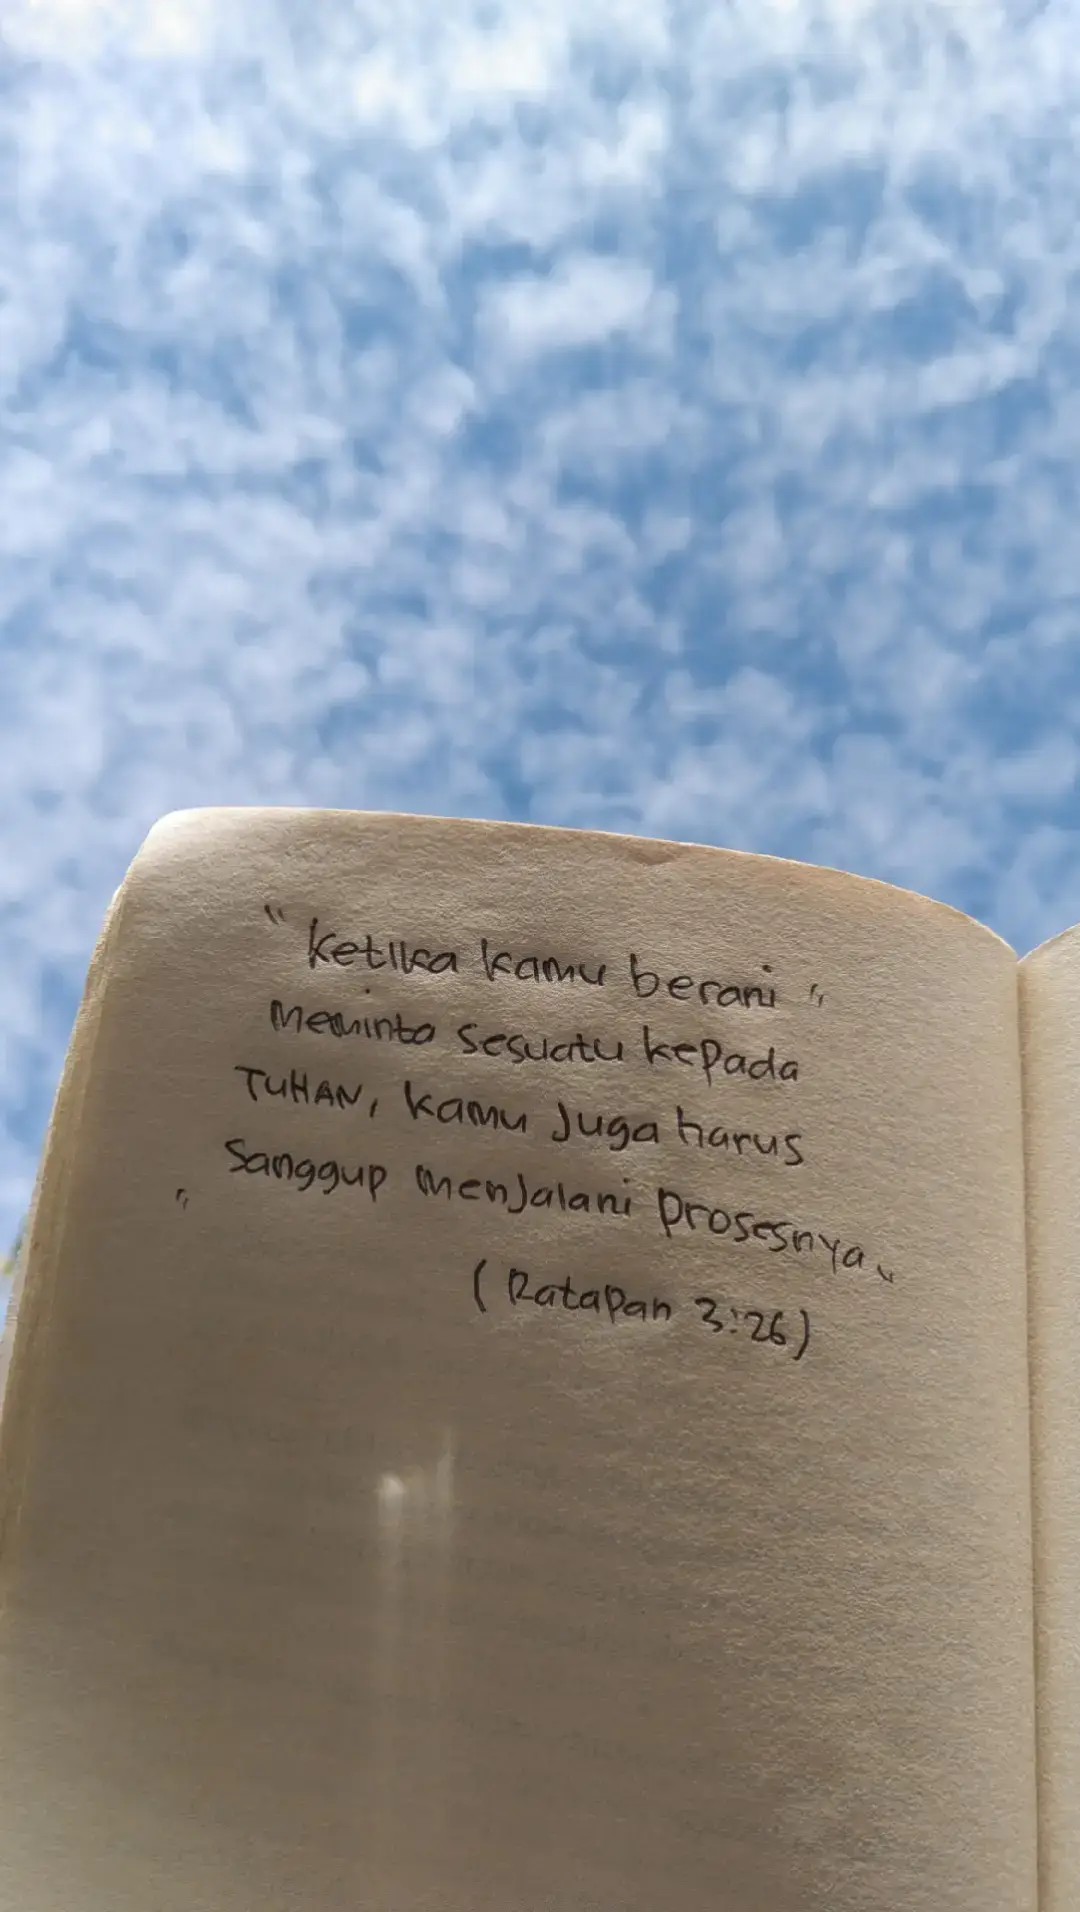 "Ketika kamu berani"
Meminta sesuatu kepada
TUHAN, kamu Juga harus
Sanggup menJalani Prosesnya"
(Ratapan 3:26)